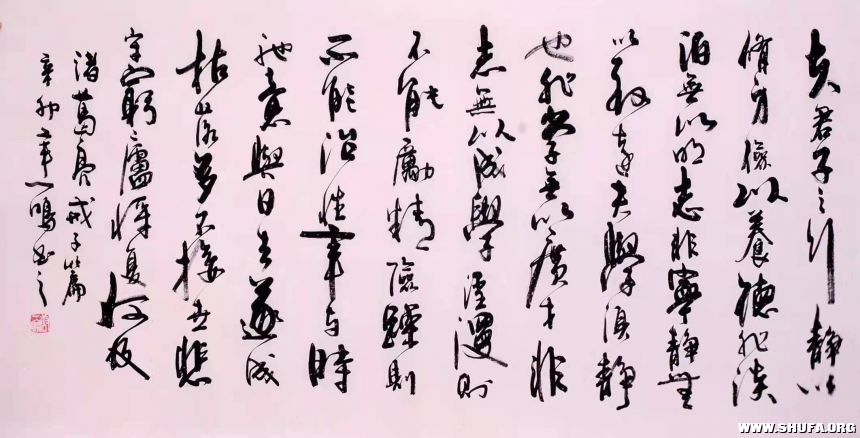 夫君子之行静以
脩身儉以養德非淡
泊無以明志非寧静無
以致遠夫學須静
也非學無以廣才非
志無以成學淫漫則
不能勵精險躁則
不能治性年与時
馳意與日去遂成
枯落多不接世悲
守窮廬將復何及
諸葛亮戒子篇
辛卯一鳴书之
WWW.SHUFA.ORG